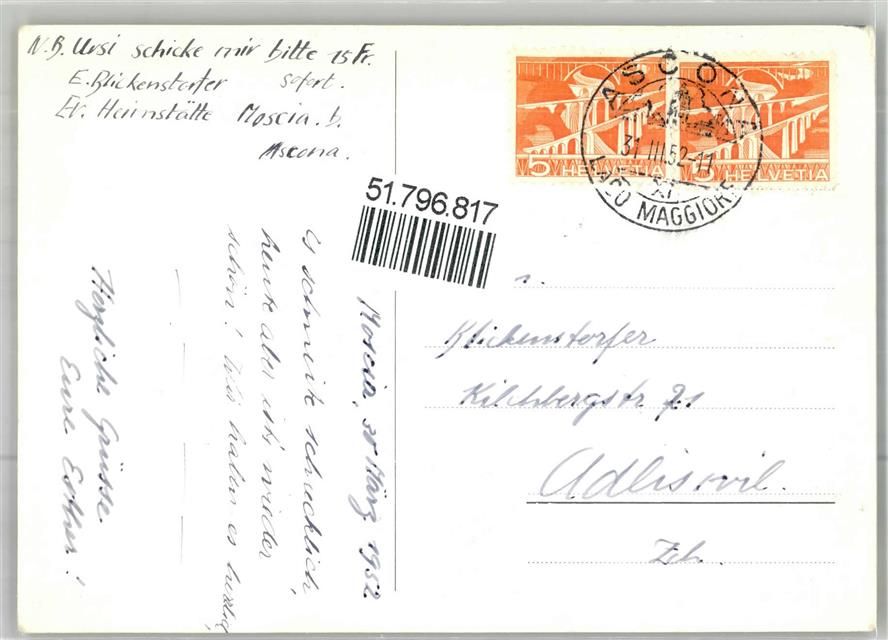 N.B. Ursi schicke mir bitte 15 Fr.
E. Blickenstorfer sofort.
Ev. Heimstätte Moscia. b.
Ascona.
ASCONA
31.III.52-11
LAGO MAGGIORE
5 HELVETIA
5 HELVETIA
51.796.817
Moscia, 30 März 1952.
Es schneite schrecklich,
heute aber ists wieder
schön! Wir haben es
Herzliche Grüsse
Eure Esther!
Blickenstorfer
Kilchbergstr 71
Adliswil.
Zch.